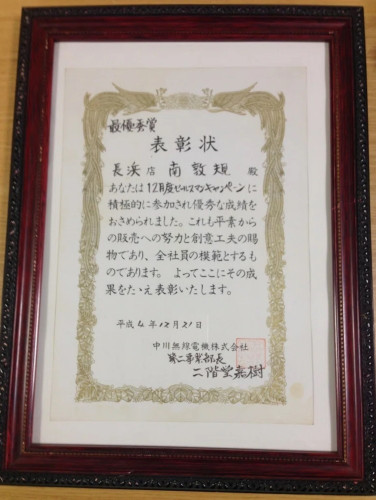 最優秀賞
表彰状
長浜店 南敦規 殿
あなたは12月度セールスマンキャンペーンに
積極的に参加され優秀な成績を
おさめられました。これも平素から
の販売への努力と創意工夫の賜
物であり、全社員の模範とするも
のであります。よってここにその成
果をたゝえ表彰いたします。
平成4年12月21日
中川無線電機株式会社
第二事業部長
二階堂嘉樹